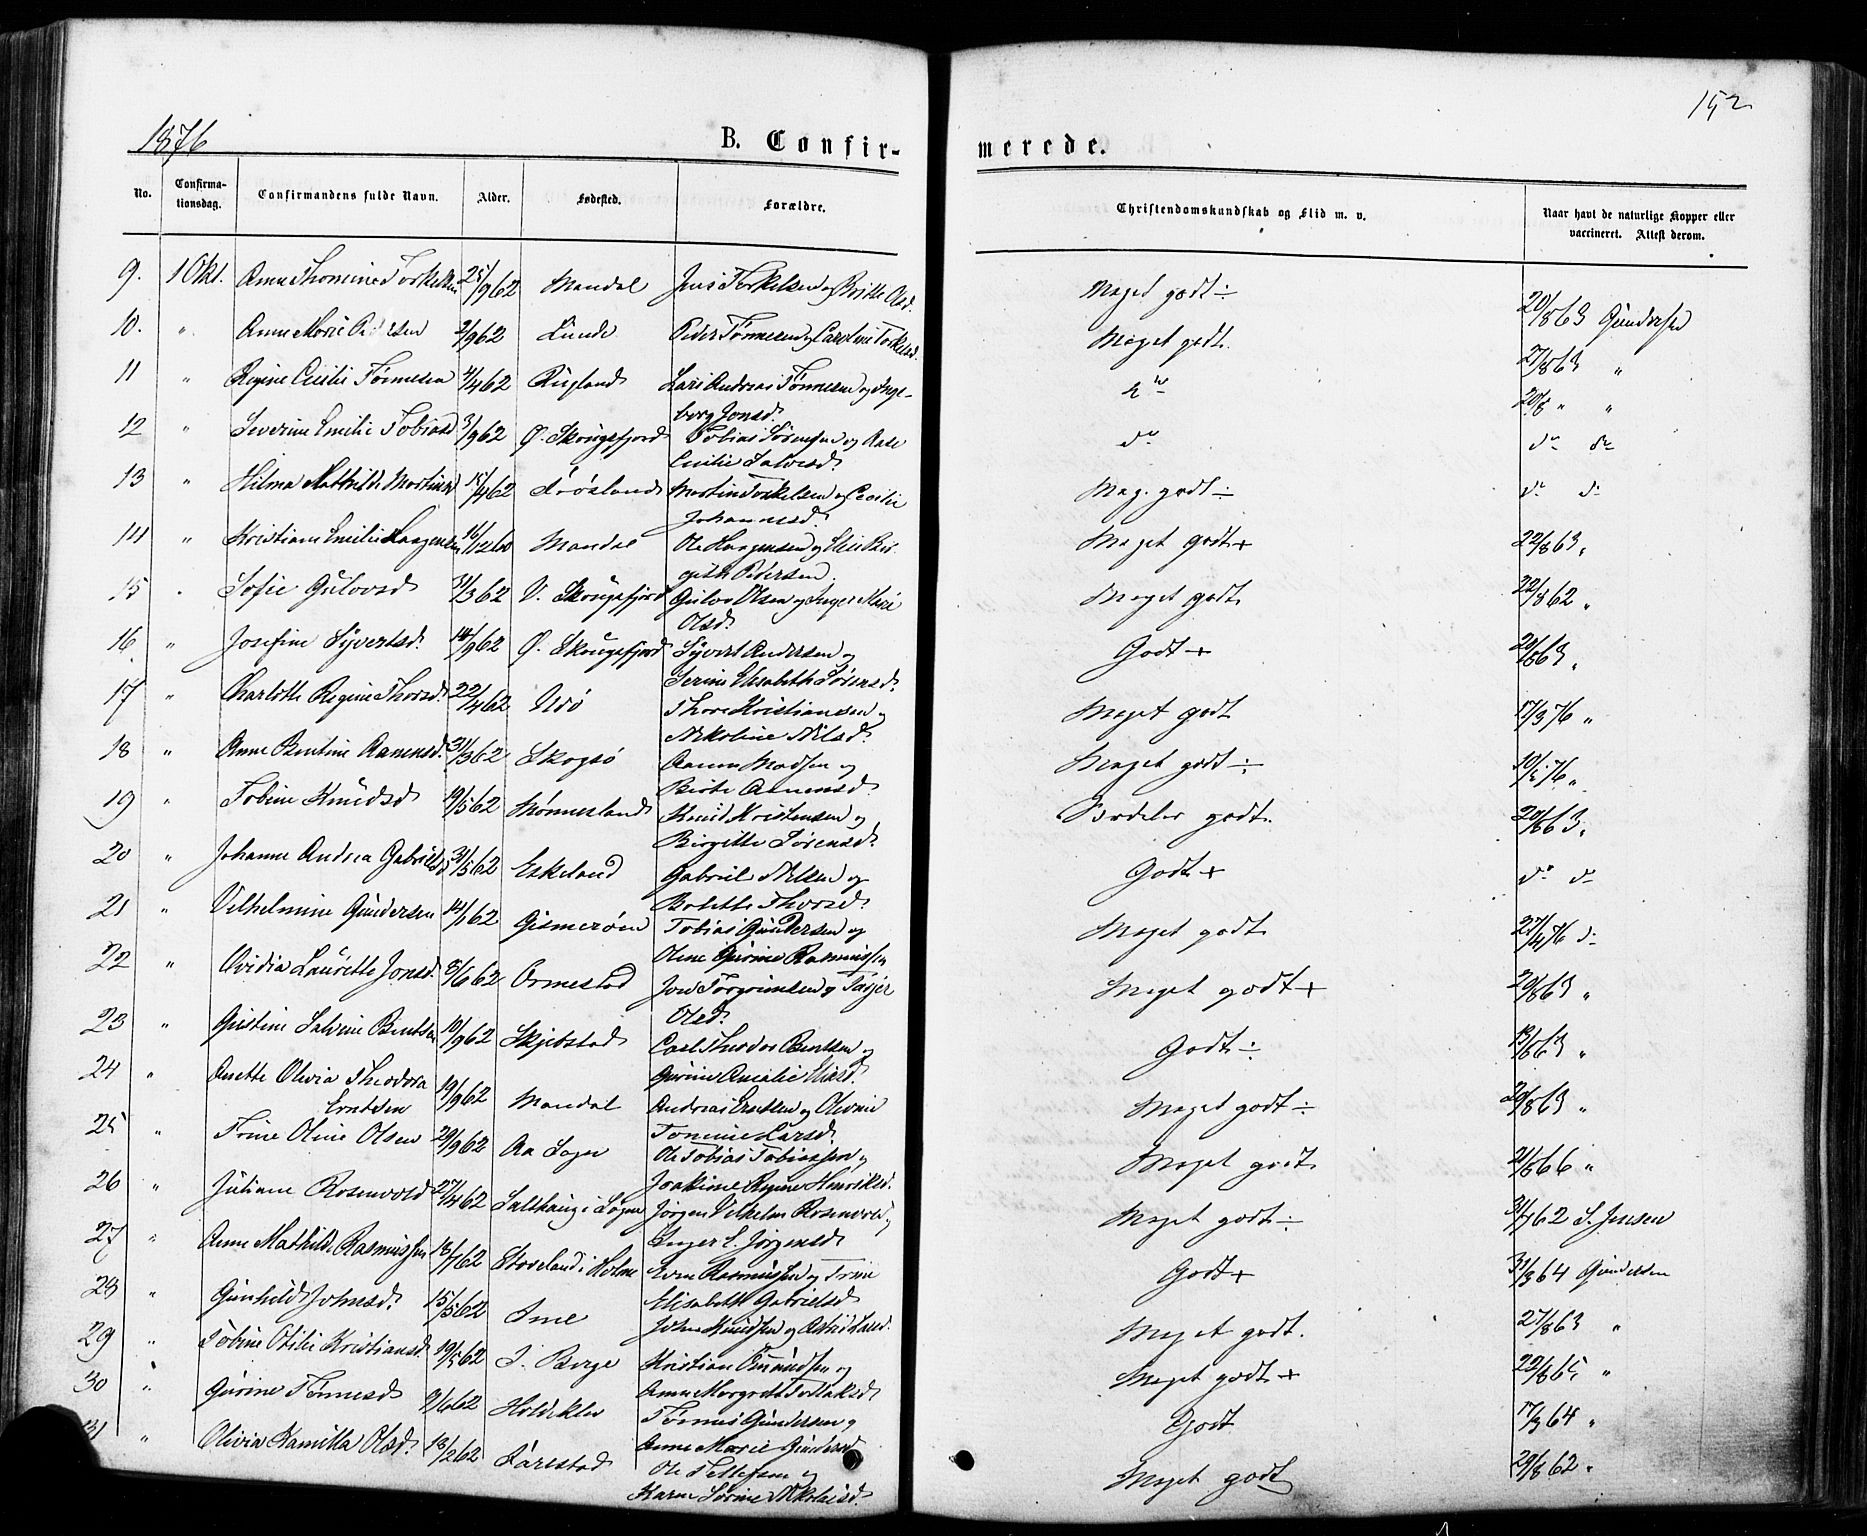 1876
152
B. Confir-
merede.
No.
Confirma-
tionsdag.
Confirmandens fulde Navn.
Alder.
Fødested.
Forældre.
Christendomskundskab og Flid m. v.
Naar havt de naturlige Kopper eller
vaccineret. Attest derom.
9. 1 Okt. Anne Thomine Torkelsen 25/962 Mandal Jens Torkelsen og Britte Olsd. Maget godt ÷ 20/863 Gundersen
10. " Anne Marie Pedersen 2/962 Lunde Peder Tønnesen og Caroline Torkelsd. Maget godt. 27/863 "
11 " Regine Cecilie Tønnesen 4/462 Rugland Lars Andreas Tønnesen og Inge-
borg Jonsd. do 20/8 " "
12 " Severine Emilie Tobiasd 3/962 Ø. Skougsfjord Tobias Sørensen og Aase
Emilie Salvesd. do do do
13 " Hilma Mathilde Martinsd 15/462 Frøsland Martin Torkelsen og Cecilie
Johannesd. Mag. godt ÷ do do
14 " Kristiane Emilie Haagensen 16/1260 Mandal Ole Haagensen og Elise Bir-
gitte Pedersen Maget godt + 22/863 "
15 " Sofie Gulovsd 31/362 V. Skougsfjord Gulov Olsen og Inger Marie
Olsd. Maget godt 22/862 "
16 " Josefine Syvertsd. 14/962 Ø. Skougsfjord Syvert Andersen og
Serine Elisabeth Sørensd. Godt + 20/863 "
17 " Charlotte Regine Thorsd. 22/462 Udø Thore Kristiansen og
Nikoline Nilsd. Maget godt 17/376 "
18 " Anne Bentine Aanensd. 31/362 Skogsø Aanen Madsen og
Birte Aanensd. Maget godt ÷ 10/576 "
19 " Tobine Knudsd 19/562 Mønnesland Knud Kristensen og
Birgitte Sørensd. Særdeles godt. 20/863 "
20 " Johanne Andrea Gabrielsd 31/562 Eskeland Gabriel Nilsen og
Bolette Thorsd. Godt + do do
21 " Vilhelmine Gundersen 14/162 Gismerøen Tobias Gundersen og
Oline Gurine Rasmussen Maget godt 27/476 do
22 " Ovidia Laurette Jonsd. 8/662 Ormestad Jon Torgrimsen og Tarjer
Olsd. Maget godt + 20/863 "
23 " Gustine Salvine Bentsen 10/962 Skjebstad Carl Theodor Bentsen og
Gurine Amalie Eliasd. Godt ÷ 13/863 "
24 " Anette Olivia Theodora
Erntsen 19/962 Mandal Andreas Erntsen og Olivine
Tomine Larsd. Maget godt ÷ 20/863 "
25 " Trine Oline Olsen 29/962 Aa Sogn Ole Tobias Tobiassen og
Joakime Regine Henriksd. Maget godt 21/866 "
26 " Juliane Rosenvold 27/462 Salthaug i Sogne Jørgen Vilhelm Rosenvold og
Inger E. Jørgensd. Maget godt ÷ 31/762 S. Jensen
27 " Anne Mathilde Rasmussen 18/762 Stoveland i Holme Even Rasmussen og Trine
Elisabeth Gabrielsd Godt + 31/864 Gundersen
28 " Gunhild Johnsd. 15/562 Ime John Knudsen og Astri Larsd. Maget godt. 27/863 "
29 " Tobine Otilie Kristiansd. 19/562 I. Berge Kristian Omundsen og
Anne Margrete Torlaksd Maget godt + 22/865 "
30 " Gurine Tønnesd 9/662 Holdeklev Tønnes Gundersen og
Anne Marie Gundersd Godt 17/964 "
31 " Olivia Kamilla Olsd. 18/262 Jaalestad Ole Tellefsen og
Karen Sørine Nikolaisd. Maget godt 29/862 "